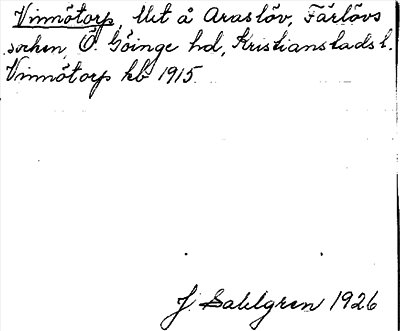 Vinnötorp, Mt å Araslöv, Färlövs
socken, Ö. Göinge hd, Kristianstads l.
Vinnötorp kb 1915
J. Sahlgren 1926